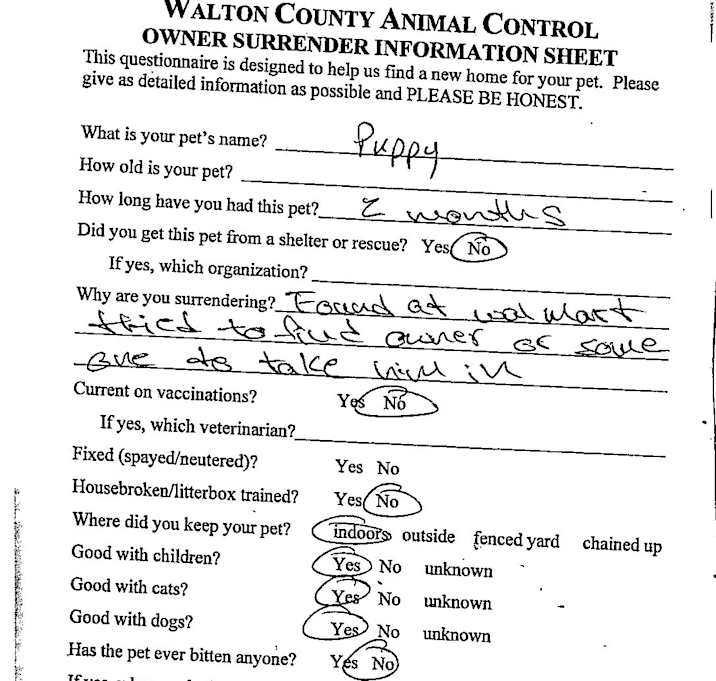 WALTON COUNTY ANIMAL CONTROL
OWNER SURRENDER INFORMATION SHEET
This questionnaire is designed to help us find a new home for your pet. Please
give as detailed information as possible and PLEASE BE HONEST.
What is your pet's name? Puppy
How old is your pet?
How long have you had this pet? 2 months
Did you get this pet from a shelter or rescue? Yes No
If yes, which organization?
Why are you surrendering? Found at walmart
tried to find owner or some
one to take him in
Current on vaccinations? Yes No
If yes, which veterinarian?
Fixed (spayed/neutered)? Yes No
Housebroken/litterbox trained? Yes No
Where did you keep your pet? indoors outside fenced yard chained up
Good with children? Yes No unknown
Good with cats? Yes No unknown
Good with dogs? Yes No unknown
Has the pet ever bitten anyone? Yes No